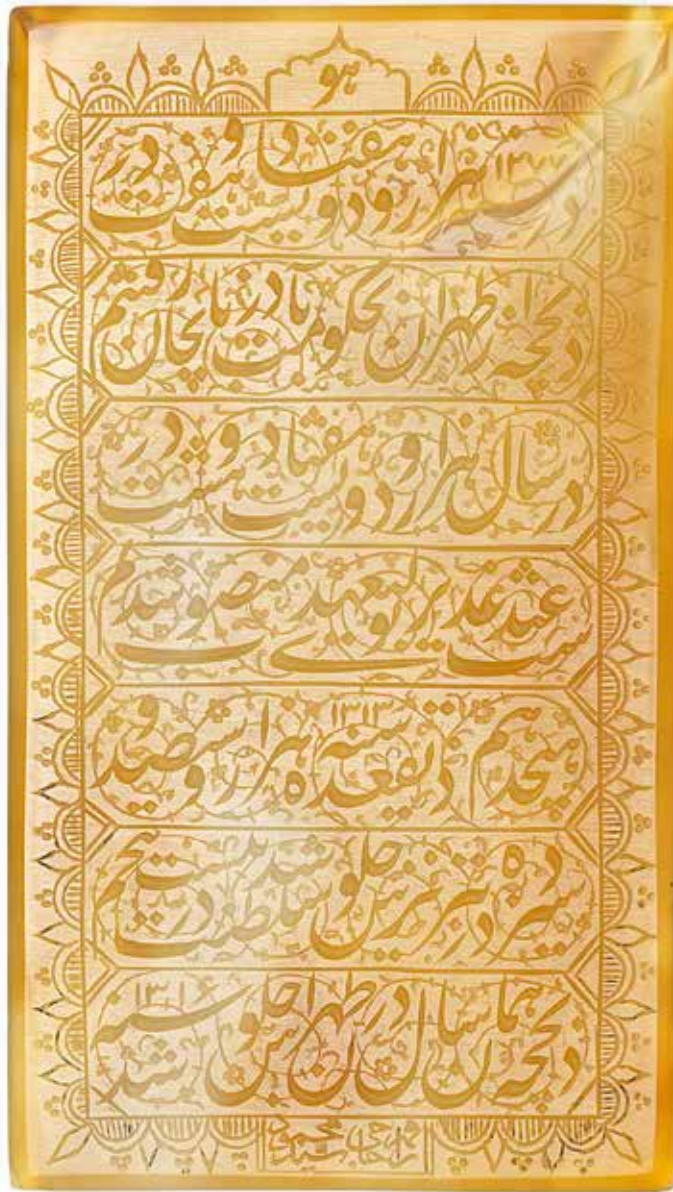 هو
در سنه ۱۲۷۷ هزار و دویست و هفتاد و هفت در
ذیحجه از طهران بحکومت آذربایجان رفتم
در سال هزار و دویست و هفتاد و هشت در
شب عید غدیر بولیعهدی منصوب شدم
هیجدهم ذیقعده سنه ۱۳۱۳ هزار و سیصد و
سیزده در تبریز جلوس سلطنت شد در بیست پنجم
ذیحجه همان سال در طهران جلوس شد سنه